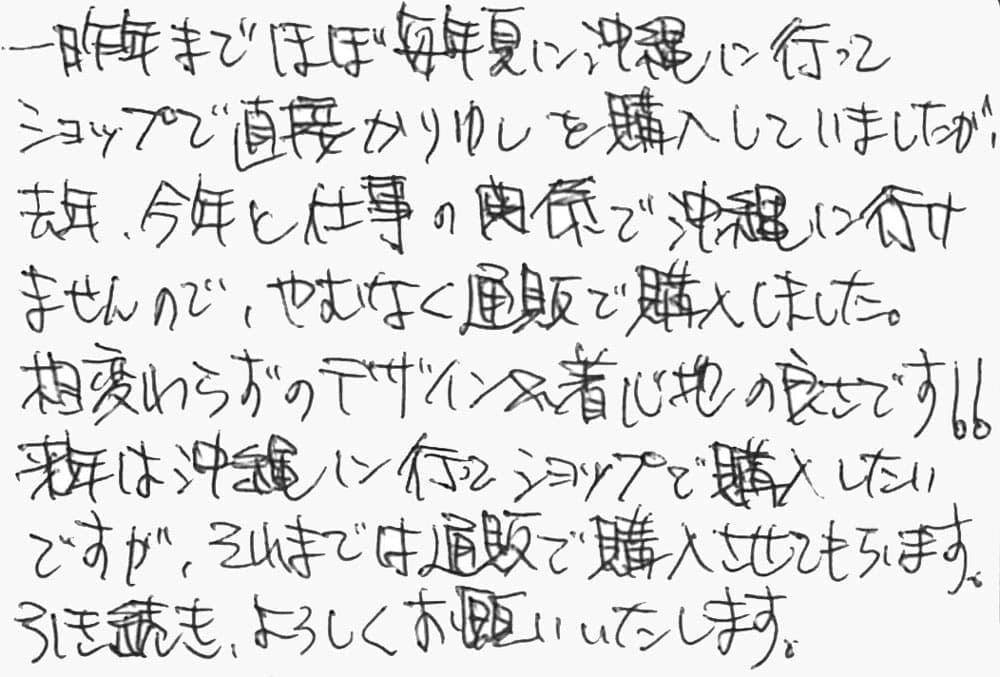 一昨年までほぼ毎年夏に沖縄に行って
ショップで直接かりゆしを購入していましたが、
去年、今年と仕事の関係で沖縄に行け
ませんので、やむなく通販で購入しました。
相変わらずのデザイン&着心地の良さです!!
来年は沖縄に行ってショップで購入したい
ですが、それまでは通販で購入させてもらいます。
引き続き、よろしくお願いいたします。